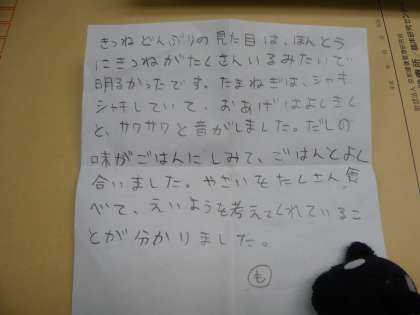 きつねどんぶりの見た目は、ほんとう
にきつねがたくさんいるみたいで
明るかったです。たまねぎは、シャキ
シャキしていて、おあげはよしきし
と、サワサワと音がしました。だしの
味がごはんにしみて、ごはんとよく
合いました。やさいをたくさん食
べて、えいようを考えてくれているこ
とが分かりました。
も